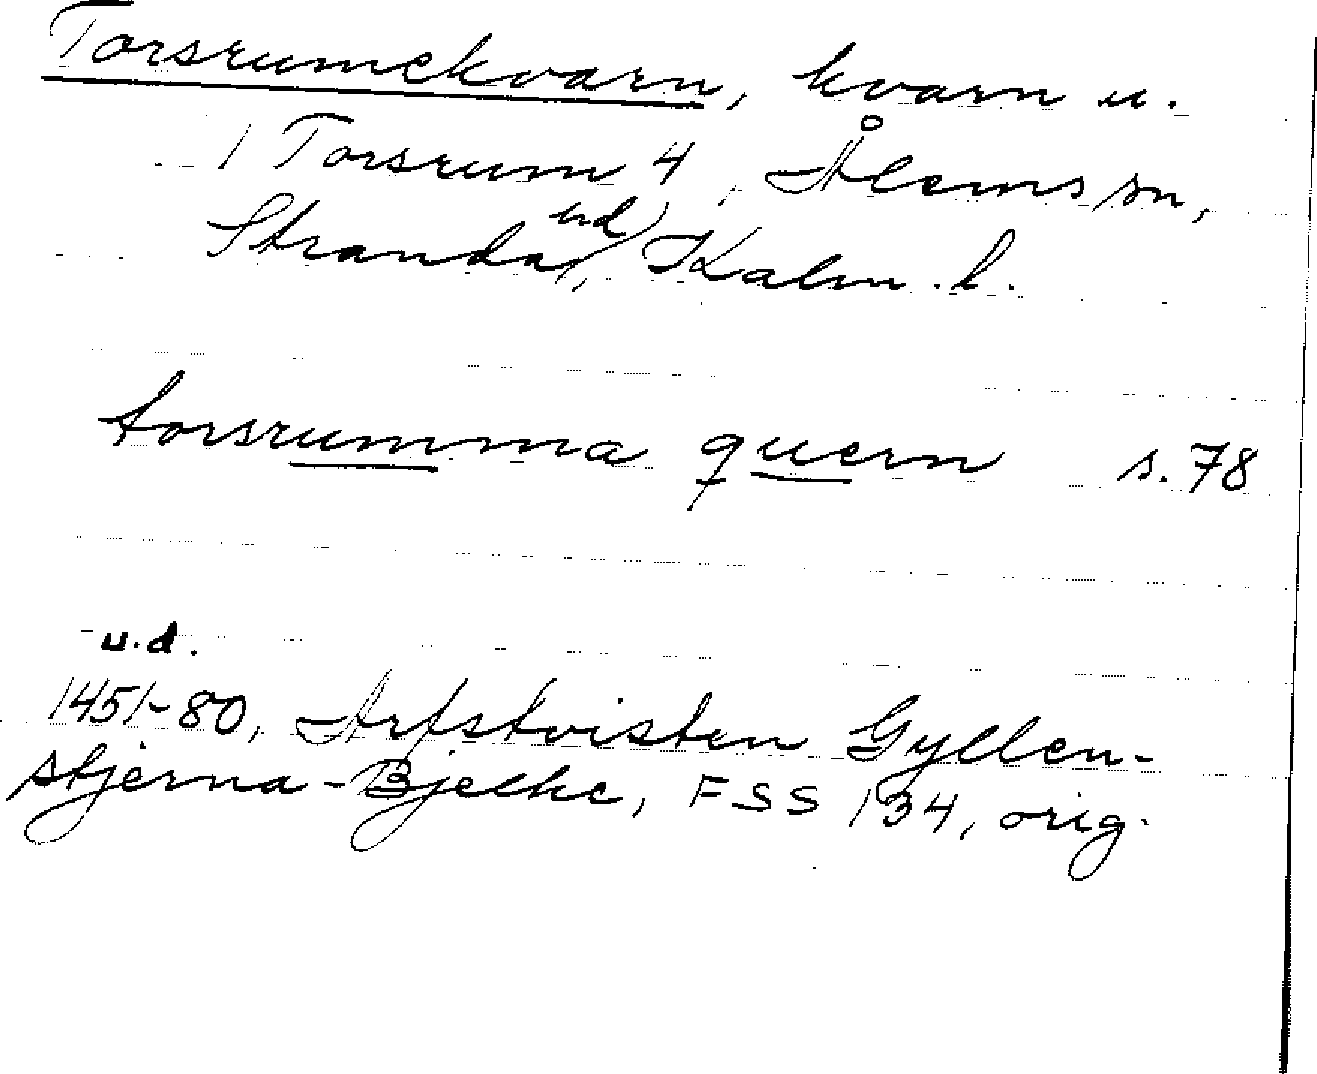 Torsrumekvarn, kvarn u.
1 Torsrum 4, Ålems sn,
Stranda hd, Kalm. l.
torsrumma quern s. 78
u.d.
1451-80, Arfstvisten Gyllen-
stjerna-Bjelke, FSS 134, orig.